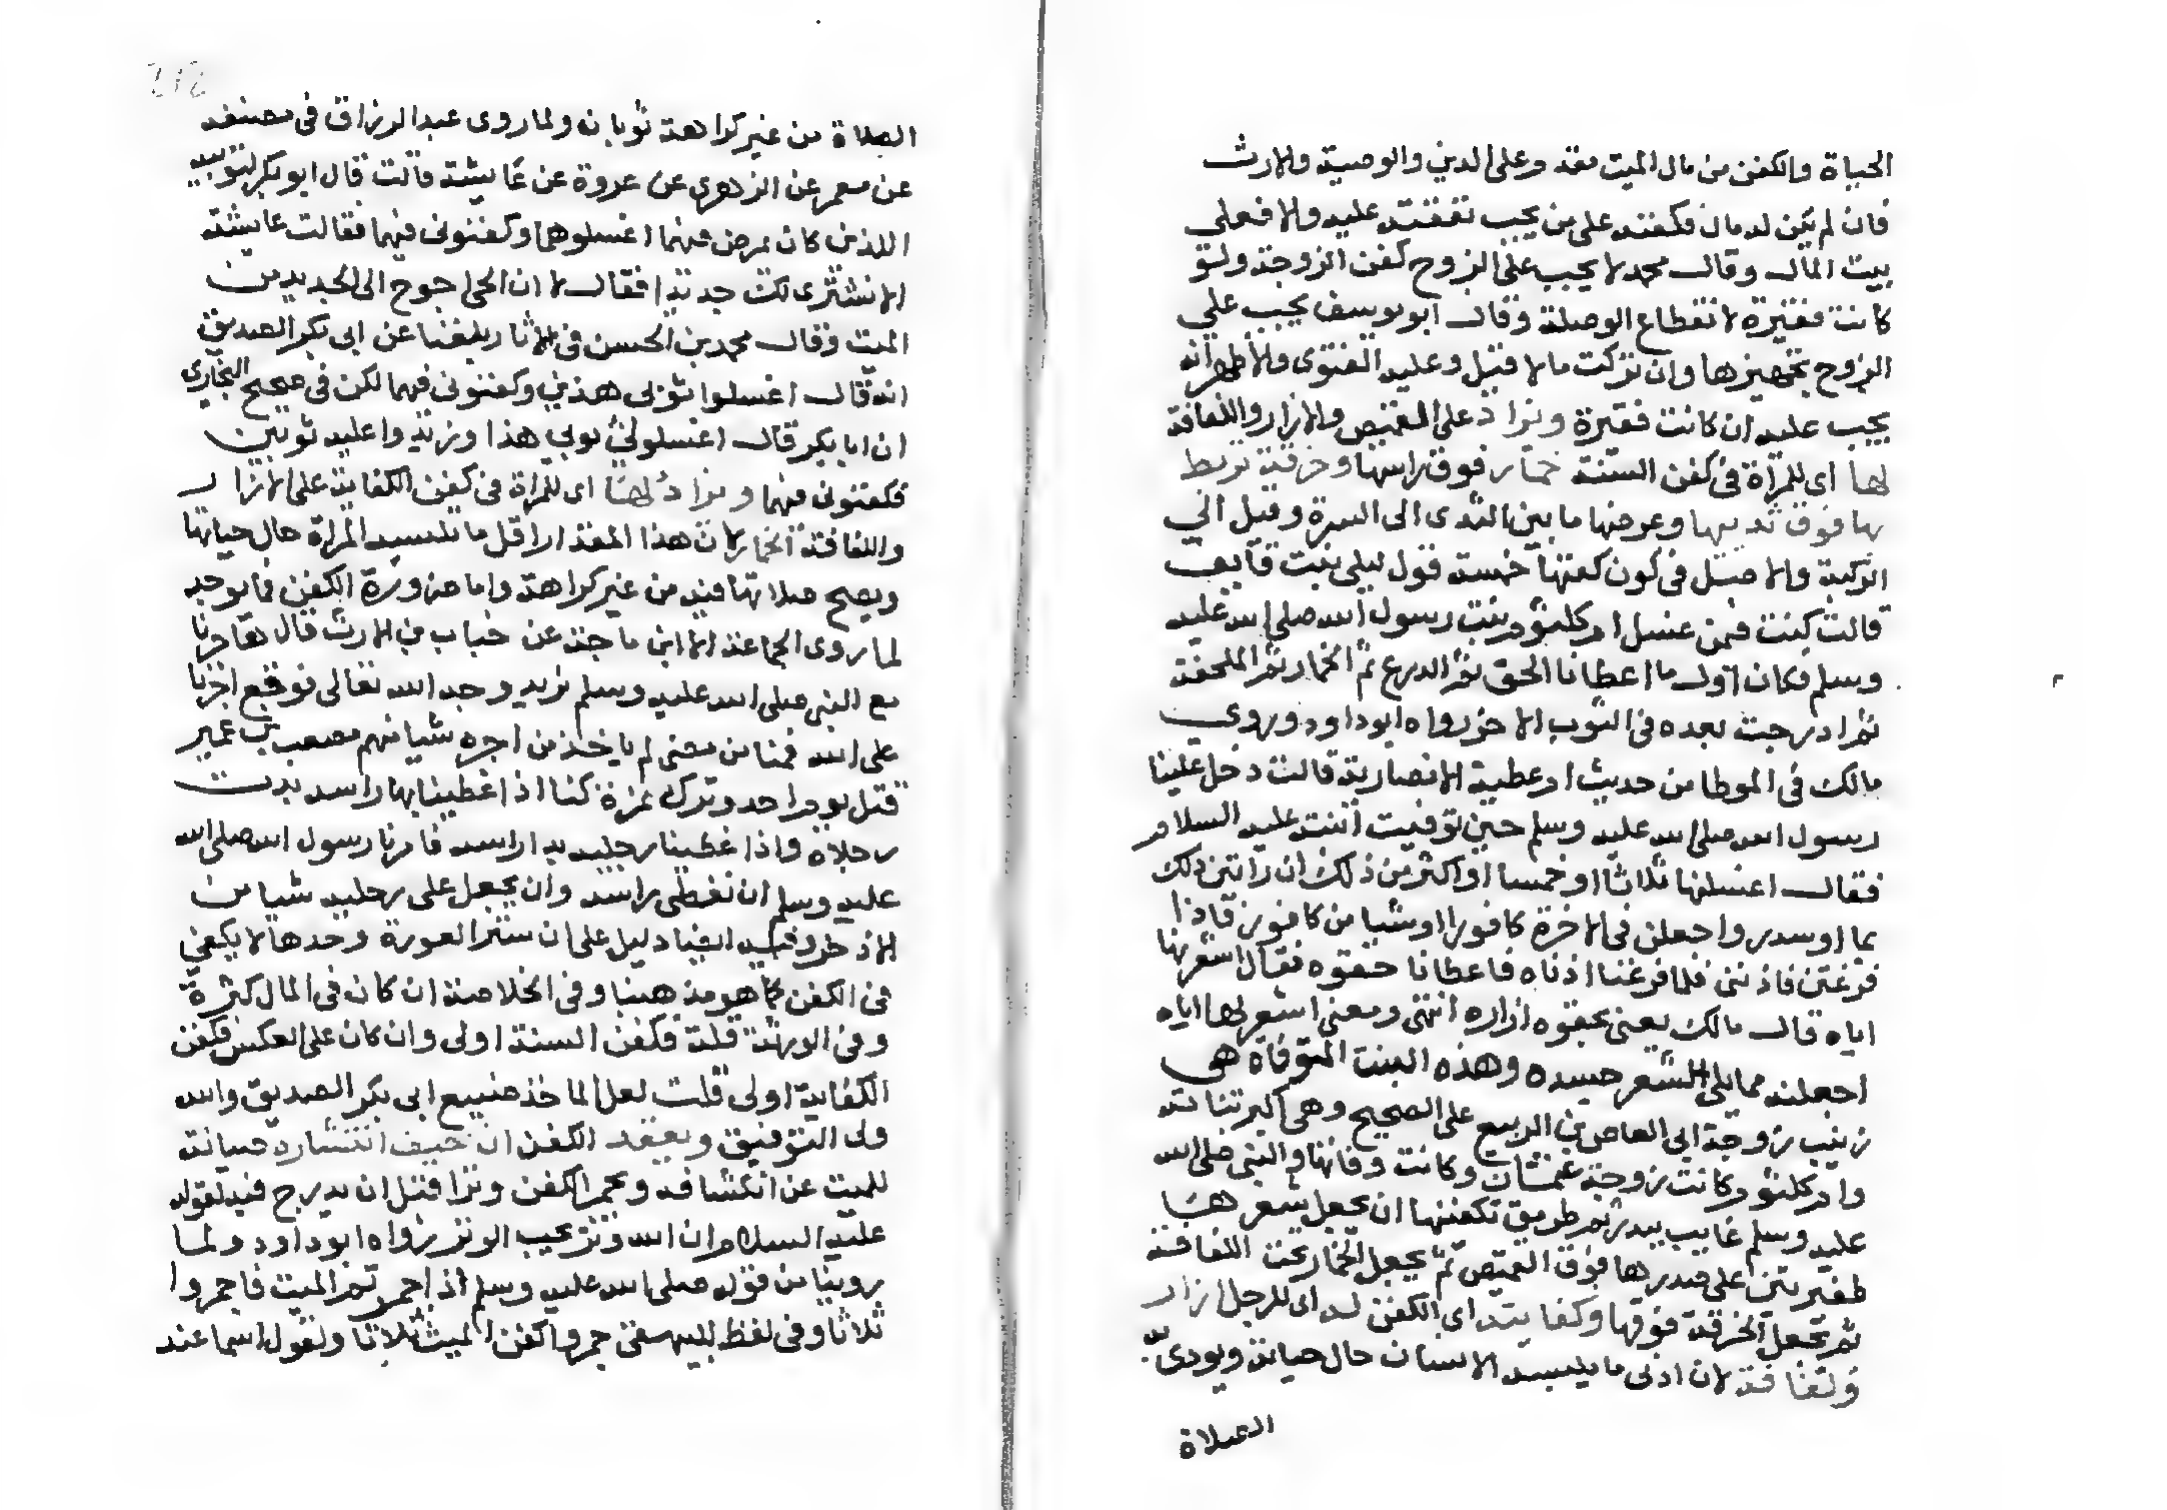 الحياة والكفن من مال الميت مقدم وعلى الدين والوصية والارث
فان لم يكن له مال فكفنه على من يجب نفقته عليه والا فعلى
بيت المال وقال محمد لا يجب على الزوج كفن الزوجة ولو
كانت فقيرة لانقطاع الوصلة وقال ابو يوسف يجب على
الزوج تجهيزها وان تركت مالا قيل وعليه الفتوى والاظهر انه
يجب عليه ان كانت فقيرة وتزاد على القميص والازار واللفافة
لها اى للمرأة فى كفن السنة خمار فوق راسها وخرقة تربط
بها فوق ثدييها وعرضها ما بين الثدى الى السرة وقيل الى
الركبة والاصل فى كون كفنها خمسة قول ليلى بنت قايف
قالت كنت فيمن غسل ام كلثوم بنت رسول الله صلى الله عليه
وسلم فكان اول ما اعطانا الحق ثم الدرع ثم الخمار ثم الملحفة
ثم ادرجت بعده فى الثوب الاخر رواه ابو داود وروى
مالك فى الموطا من حديث ام عطية الانصارية قالت دخل علينا
رسول الله صلى الله عليه وسلم حين توفيت ابنته عليه السلام
فقال اغسلنها ثلاثا او خمسا او اكثر من ذلك ان راتين ذلك
بما او سدر واجعلن فى الاخرة كافورا او شيا من كافور فاذا
فرغتن فاذننى فلما فرغنا اذناه فاعطانا حقوه فقال اشعرنها
اياه قال مالك يعنى بحقوه ازاره انتهى ومعنى اشعرنها اياه
اجعلنه مما يلى الشعر جسده وهذه البنت المتوفاة هى
زينب زوجة ابى العاص بن الربيع على الصحيح وهى اكبر بناته
وام كلثوم كانت زوجة عثمان وكانت وفاتها والنبى صلى الله
عليه وسلم غايب ببدر ثم طريق تكفينها ان يجعل شعرها
ظفيرتين على صدرها فوق القميص ثم يجعل الخمار تحت اللفافة
ثم تجعل الخرقة فوقها وكفايته اى الكفن له اى للرجل ازار
ولفافة لان ادنى ما يلبسه الانسان حال حياته ويودى به
الصلاة
الصلاة من غير كراهة ثوبان ولما روى عبد الرزاق فى مصنفه
عن معمر عن الزهرى عن عروة عن عايشة قالت قال ابو بكر لثوبيه
اللذين كان يمرض فيهما اغسلوهما وكفنونى فيهما فقالت عايشة
الا نشترى لك جديدا فقال لا ان الحى احوج الى الجديد من
الميت وقال محمد بن الحسن فى الاثار بلغنا عن ابى بكر الصديق
انه قال اغسلوا ثوبى هذين وكفنونى فيهما لكن فى صحيح البخارى
ان ابا بكر قال اغسلوا ثوبى هذا وزيدوا عليه ثوبين
فكفنونى فيهما ويزاد لها اى للمرأة فى كفن الكفاية على الازار
واللفافة الخمار لان هذا المقدار اقل ما تلبسه المرأة حال حياتها
ويصح صلاتها فيه من غير كراهة واما ضرورة الكفن فما يوجد
لما روى الجماعة الا ابن ماجة عن خباب بن الارت قال هاجرنا
مع النبى صلى الله عليه وسلم نريد وجه الله تعالى فوقع اجرنا
على الله فمنا من مضى لم ياخذ من اجره شيا منهم مصعب بن عمير
قتل يوم احد وترك نمرة كنا اذا غطينا بها راسه بدت
رجلاه واذا غطينا رجليه بدا راسه فامرنا رسول الله صلى الله
عليه وسلم ان نغطى راسه وان يجعل على رجليه شيا من
الاذخر وفيه ايضا دليل على ان ستر العورة وحدها لا يكفى
فى الكفن كما هو مذهبنا وفى الخلاصة ان كان فى المال كثرة
وفى الورثة قلة فكفن السنة اولى وان كان على العكس فكفن
الكفاية اولى قلت لعل الماخذ صنيع ابى بكر الصديق والله
ولى التوفيق ويعقد الكفن ان خيف انتشاره صيانة
للميت عن انكشافه ويجمر الكفن وترا قبل ان يدرج فيه لقوله
عليه السلام ان الله وتر يحب الوتر رواه ابو داود ولما
روينا من قوله صلى الله عليه وسلم اذا جمرتم الميت فاجمروا
ثلاثا وفى لفظ للبيهقى جمروا كفن الميت ثلاثا ولقول اسما عند